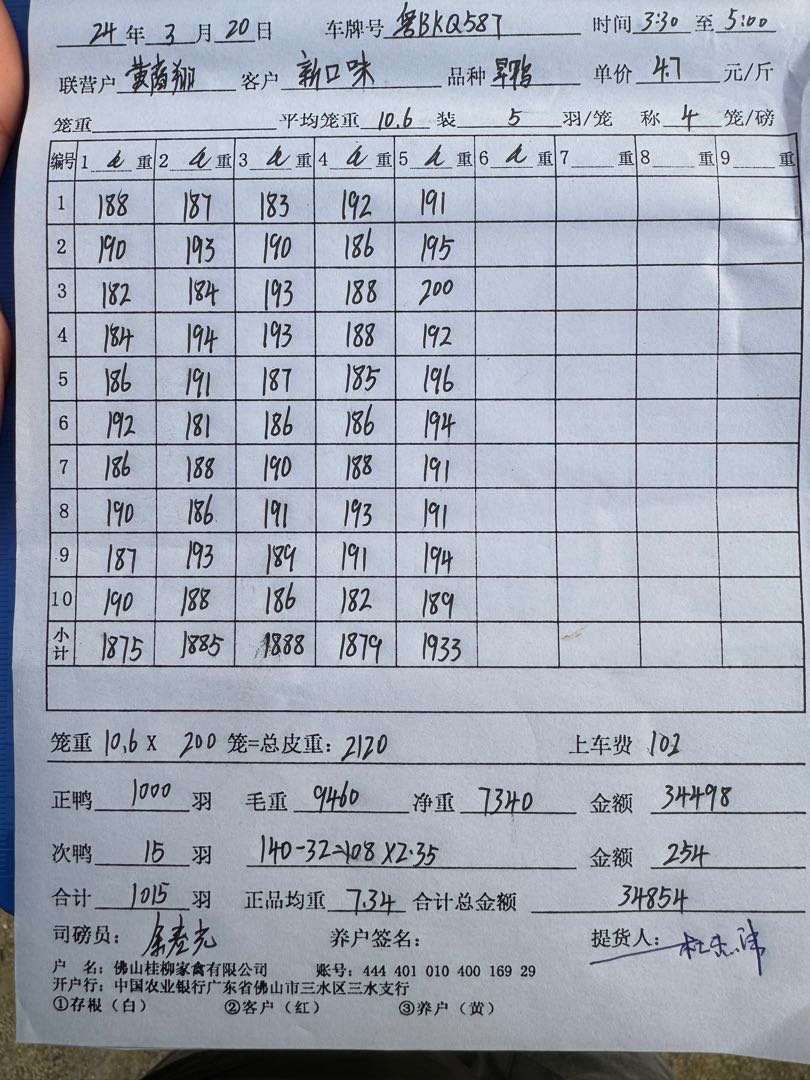 24年3月20日 车牌号 粤BKQ587 时间 3:30 至 5:00
联营户 黄荫翔 客户 新口味 品种 旱鸭 单价 4.7 元/斤
笼重 平均笼重 10.6 装 5 羽/笼 称 4 笼/磅
编号 1 重 2 重 3 重 4 重 5 重 6 重 7 重 8 重 9 重
1 188 187 183 192 191
2 190 193 190 186 195
3 182 184 193 188 200
4 184 194 193 188 192
5 186 191 187 185 196
6 192 181 186 186 194
7 186 188 190 188 191
8 190 186 191 193 191
9 187 193 189 191 194
10 190 188 186 182 189
小计 1875 1885 1888 1879 1933
笼重 10.6 X 200 笼=总皮重: 2120 上车费 102
正鸭 1000 羽 毛重 9460 净重 7340 金额 34498
次鸭 15 羽 140-32=108X2.35 金额 254
合计 1015 羽 正品均重 7.34 合计总金额 34854
司磅员: 养户签名: 提货人:
户 名: 佛山桂柳家禽有限公司 账号: 444 401 010 400 169 29
开户行: 中国农业银行广东省佛山市三水区三水支行
①存根(白) ②客户(红) ③养户(黄)